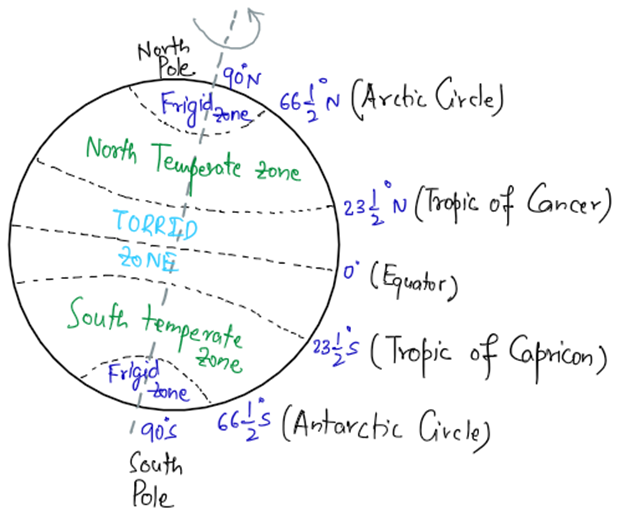 North
Pole
90°N
Frigid
zone
66 1/2° N (Arctic Circle)
North Temperate zone
23 1/2° N (Tropic of Cancer)
TORRID
ZONE
0° (Equator)
South temperate
zone
23 1/2° S (Tropic of Capricon)
Frigid
zone
66 1/2° S (Antarctic Circle)
90°S
South
Pole